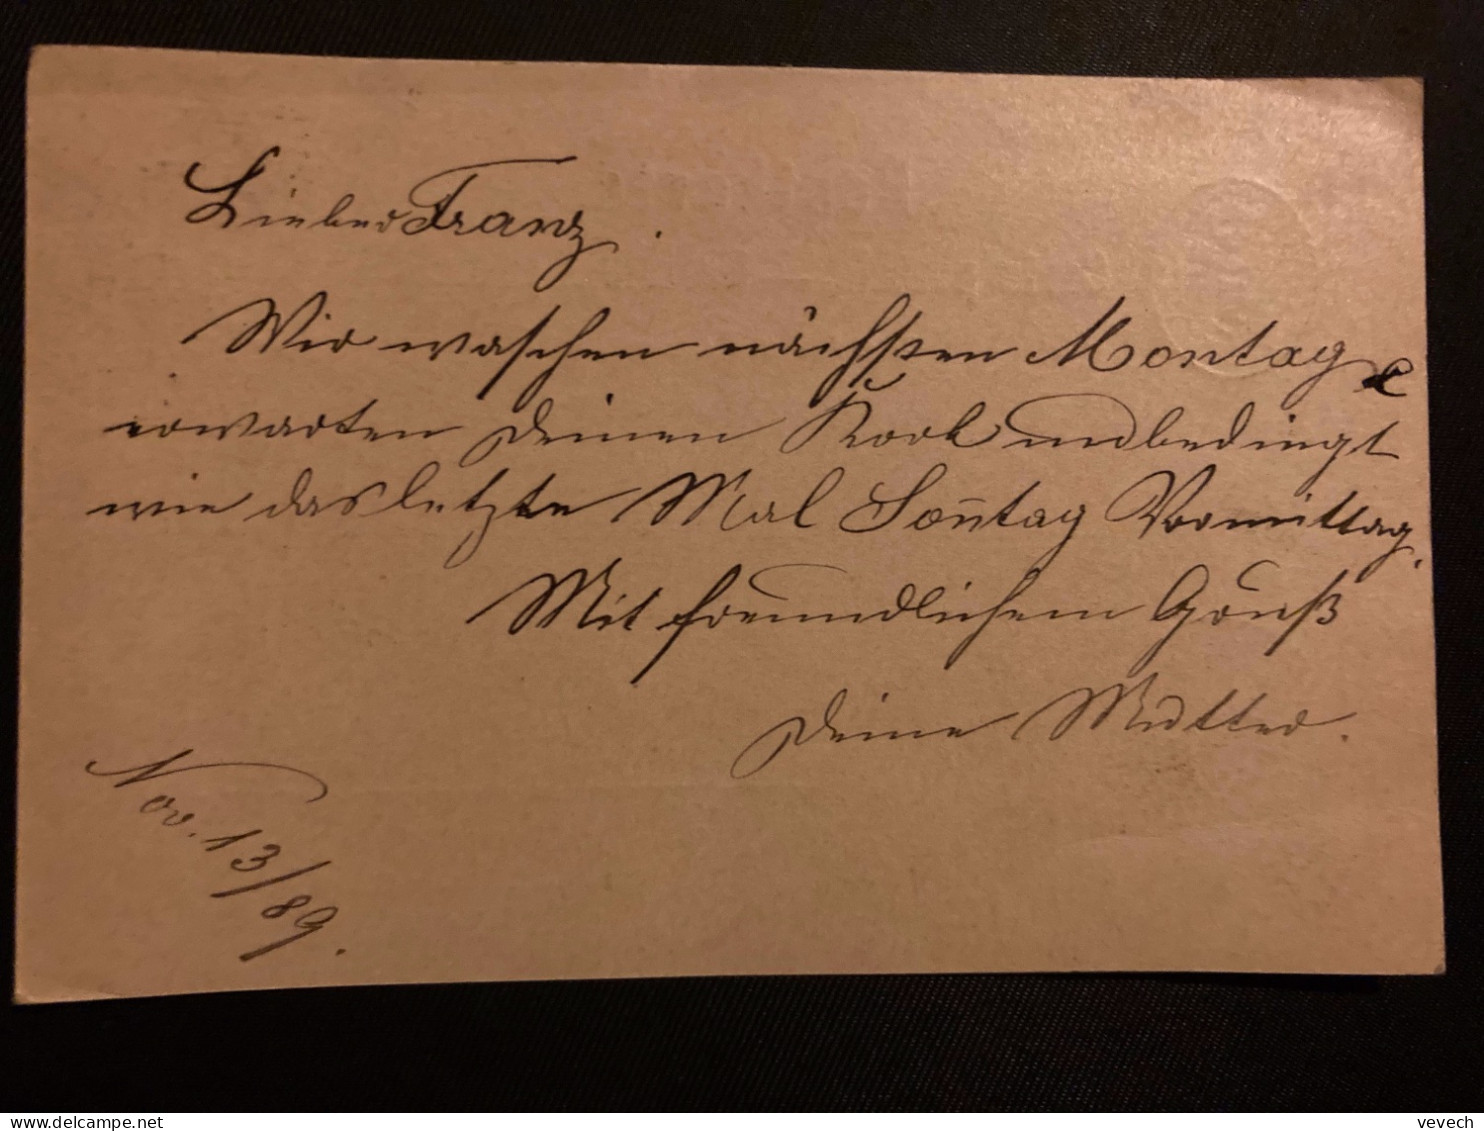 Lieber Franz.
Wir waschen nächsten Montag &
erwarten Deinen Korb undbedingt
wie das letzte Mal Son̄tag Vormittag.
Mit freundlichem Gruß
Deine Mutter.
Nov. 13/89.
vevech